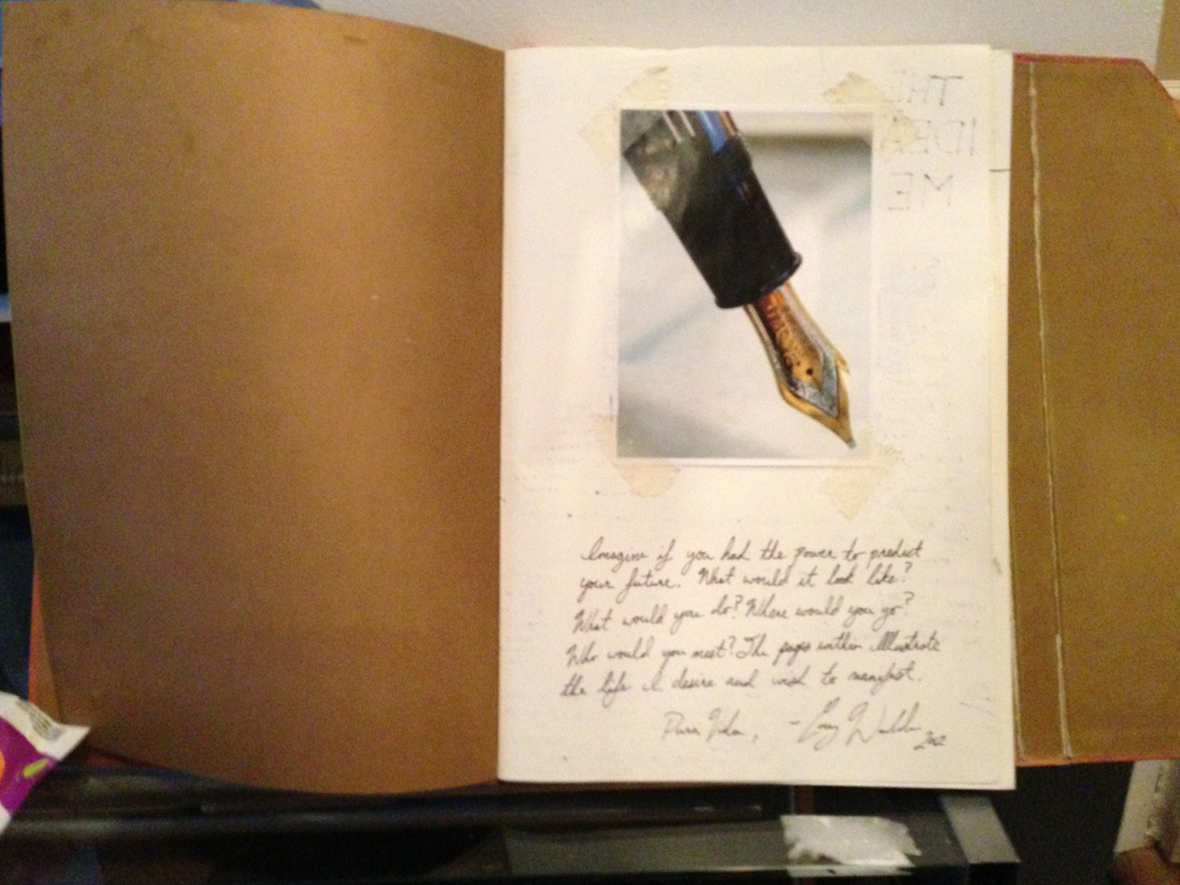 THE
IDEA
ME
Imagine if you had the power to predict
your future. What would it look like?
What would you do? Where would you go?
Who would you meet? The pages within Illustrate
the life I desire and wish to manifest.
Pura Vida, -
2012